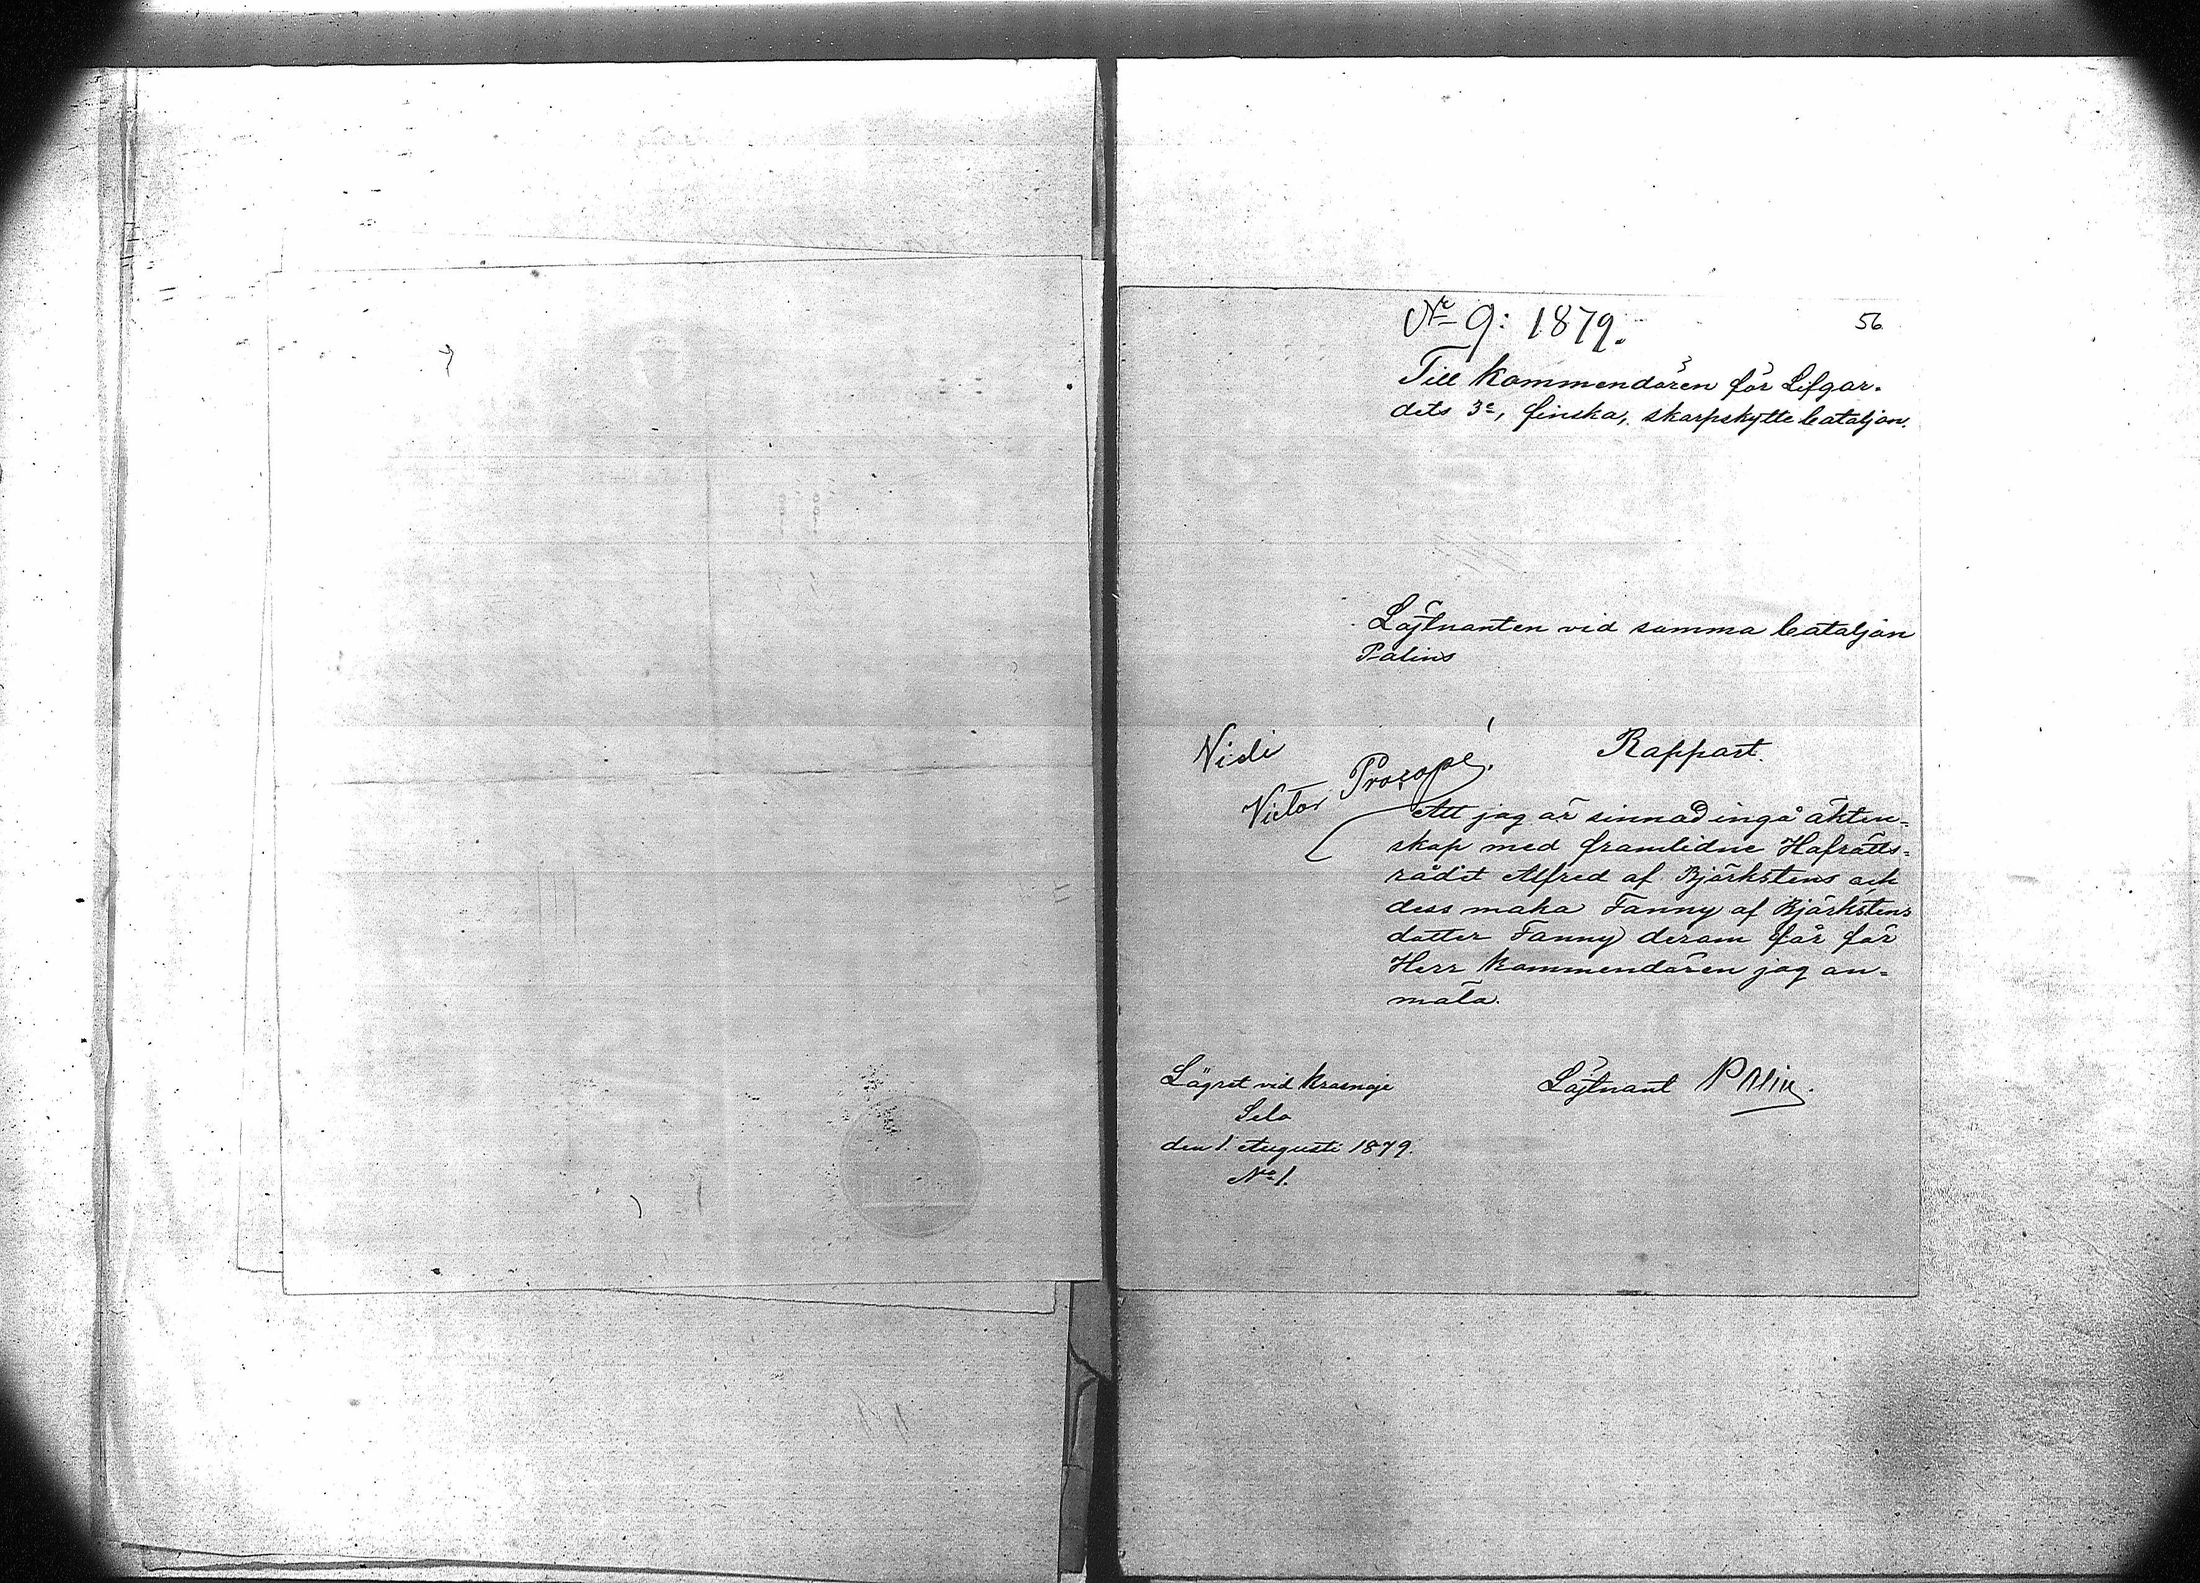 Nr 9: 1879.
56
Till Kommendören för Lifgar-
dets 3e, finska, skarpskytte bataljon.
Löjtnanten vid samma bataljon
Palins
Vidi
Victor Procopé.
Rapport.
Att jag är sinnad ingå äkten=
skap med framlidne Hofrätts=
rådet Alfred af Björkstens och
dess maka Fanny af Björkstens
dotter Fanny derom får för
Herr Kommendören jag an=
mäla.
Lägret vid Krasnoje
Selo
den 1. Augusti 1879.
No 1.
Löjtnant Palin.